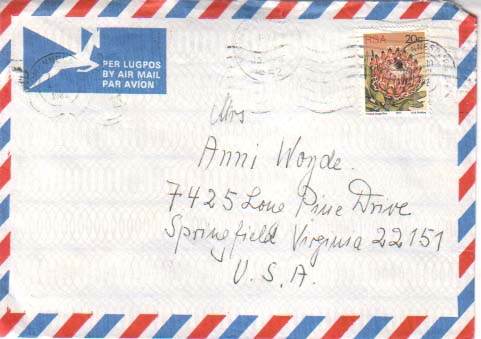 PER LUGPOS
BY AIR MAIL
PAR AVION
RSA 20c
Mrs
Anni Woyde.
7425 Lone Pine Drive
Springfield Virginia 22151
U.S.A.